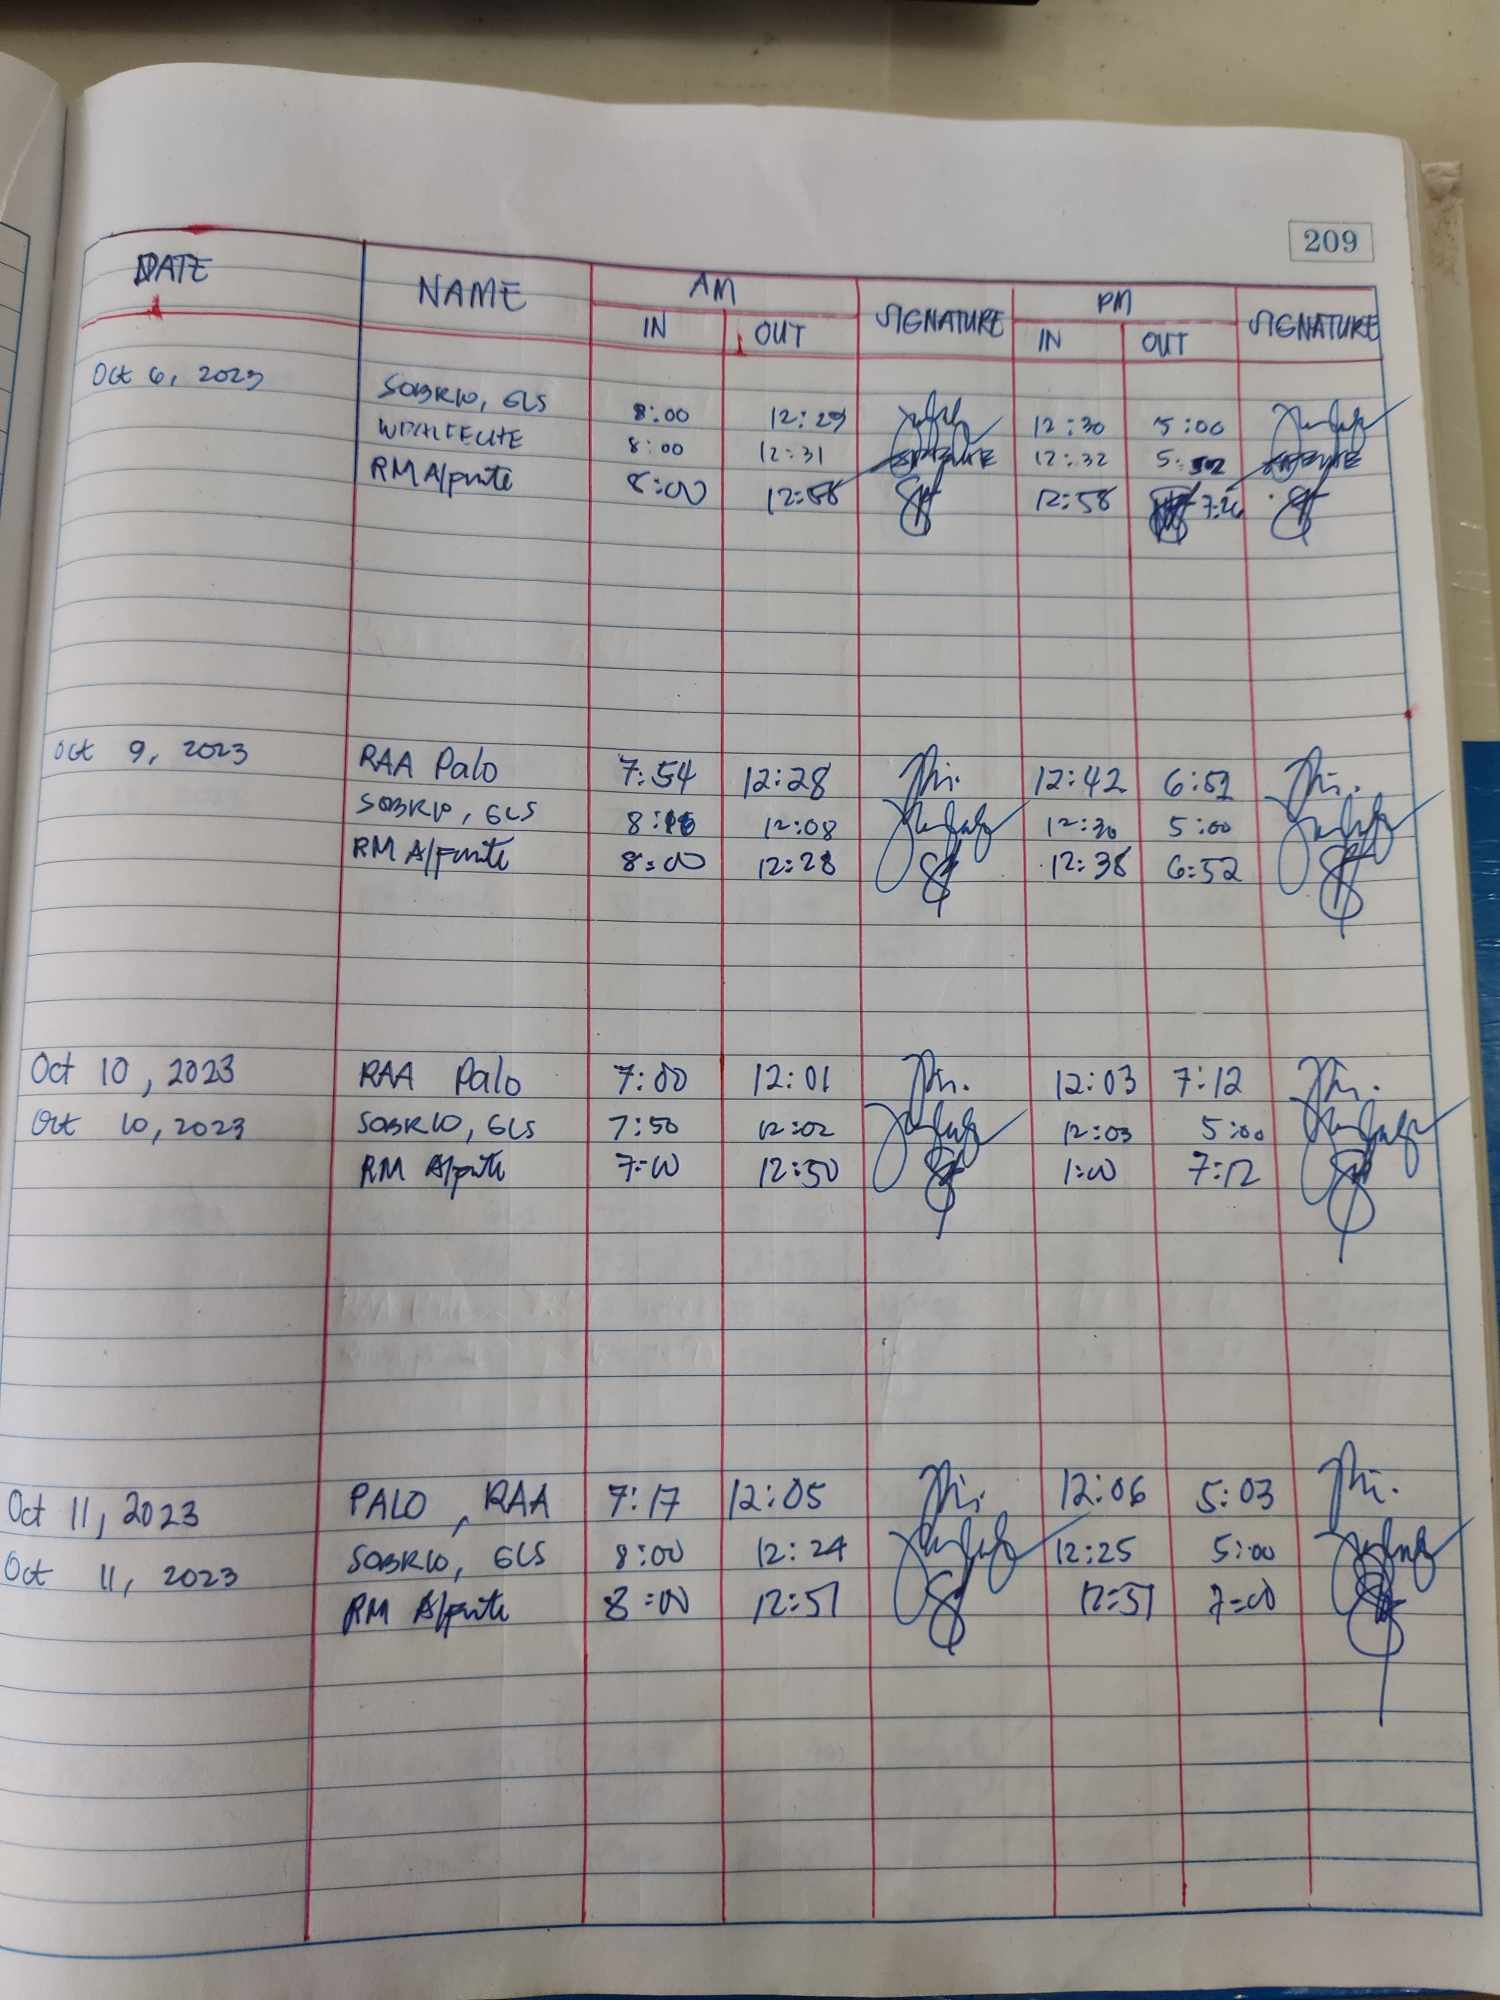 209
DATE NAME AM SIGNATURE PM SIGNATURE
IN OUT IN OUT
Oct 6, 2023
SOBRIO, GLS 8:00 12:29 12:30 5:00
8:00 12:31 12:32 5:
RM 8:00 12:58 12:58 7:26
Oct 9, 2023 RAA Palo 7:54 12:28 12:42 6:52
SOBRIO, GLS 12:08 12:30 5:00
RM 8:00 12:28 12:38 6:52
Oct 10, 2023 RAA Palo 7:00 12:01 12:03 7:12
Oct 10, 2023 SOBRIO, GLS 7:50 12:02 12:03 5:00
RM 7:00 12:50 1:00 7:12
Oct 11, 2023 PALO, RAA 7:17 12:05 12:06 5:03
Oct 11, 2023 SOBRIO, GLS 8:00 12:24 12:25 5:00
RM 8:00 12:51 12:51 7:00